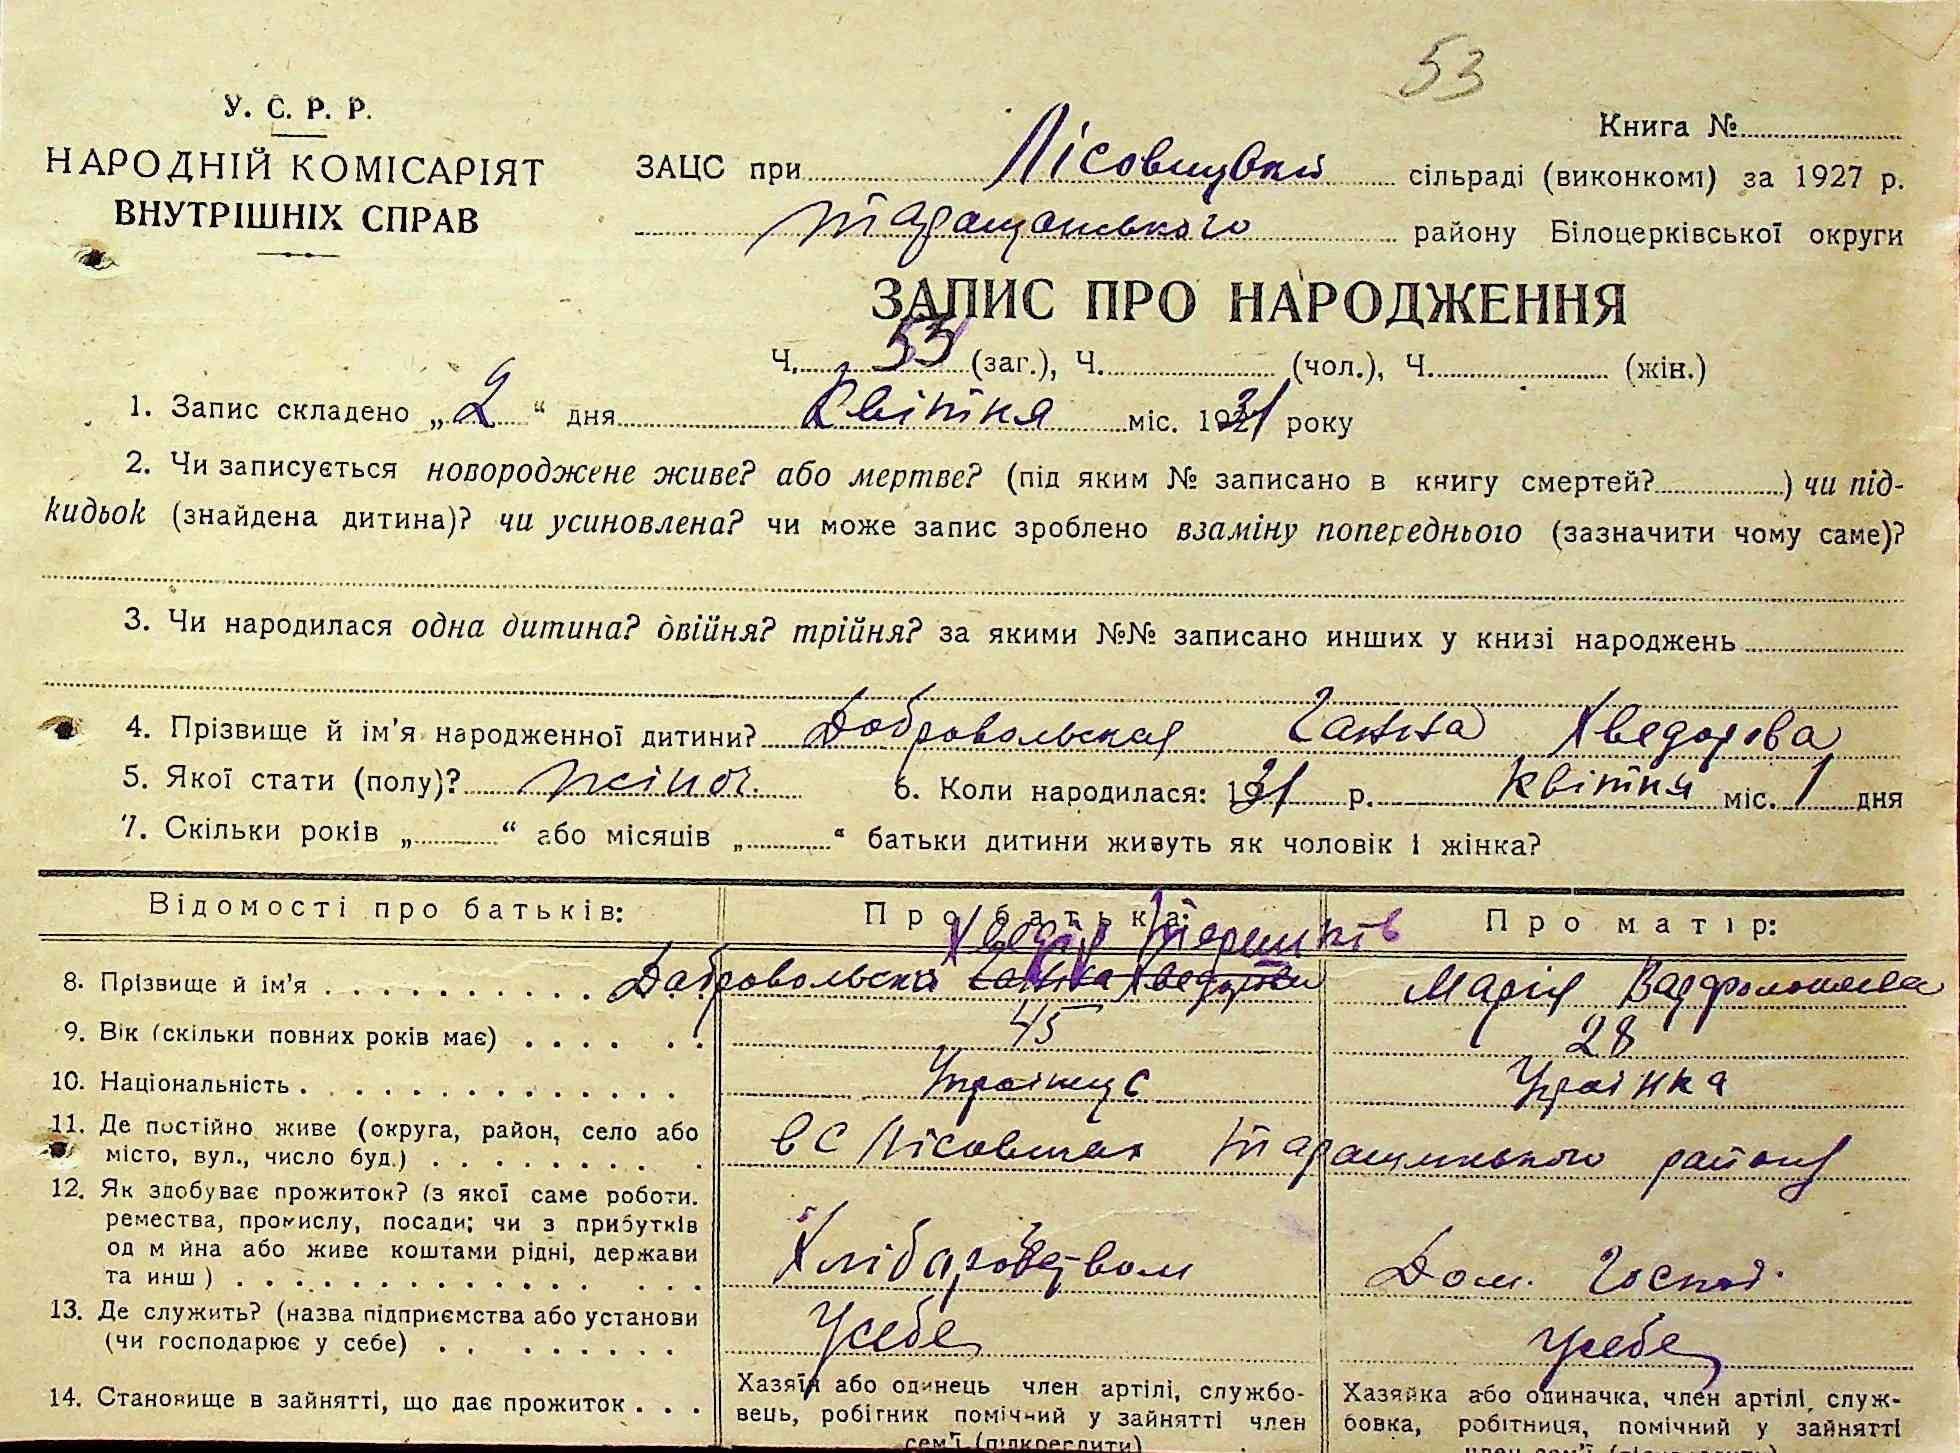 53
У. С. Р. Р.
НАРОДНІЙ КОМІСАРІЯТ
ВНУТРІШНІХ СПРАВ
Книга №
ЗАЦС при Лісовицькій сільраді (виконкомі) за 1927 р.
Таращанського району Білоцерківської округи
ЗАПИС ПРО НАРОДЖЕННЯ
Ч. 53 (заг.), Ч. (чол.), Ч. (жін.)
1. Запис складено „2“ дня Квітня міс. 1931 року
2. Чи записується новороджене живе? або мертве? (під яким № записано в книгу смертей? ) чи під-
кидьок (знайдена дитина)? чи усиновлена? чи може запис зроблено взаміну попереднього (зазначити чому саме)?
3. Чи народилася одна дитина? двійня? трійня? за якими №№ записано инших у книзі народжень
4. Прізвище й ім'я народженної дитини? Добровольская Ганна Хведорова
5. Якої стати (полу)? жіноч. 6. Коли народилася: 1931 р. Квітня міс. 1 дня
7. Скільки років „ “ або місяців „ “ батьки дитини живуть як чоловік і жінка?
Відомості про батьків: Про батька: Про матір:
Хведір Терешків
8. Прізвище й ім'я Добровольскій Ганна Хведорова Марія Варфоломеева
9. Вік (скільки повних років має) 45 28
10. Національність Українець Українка
11. Де постійно живе (округа, район, село або
місто, вул., число буд.) в с Лісовичах Таращинського району
12. Як здобуває прожиток? (з якої саме роботи.
ремества, промислу, посади; чи з прибутків
од м йна або живе коштами рідні, держави
та инш) Хліборобством Дом. Господ.
13. Де служить? (назва підприємства або установи
(чи господарює у себе) Усебе Усебе
14. Становище в зайнятті, що дає прожиток
Хазяїн або одинець член артілі, службо-
вець, робітник помічний у зайнятті член
сем'ї (підкреслити)
Хазяйка або одиначка, член артілі, служ-
бовка, робітниця, помічний у зайнятті
член сем'ї